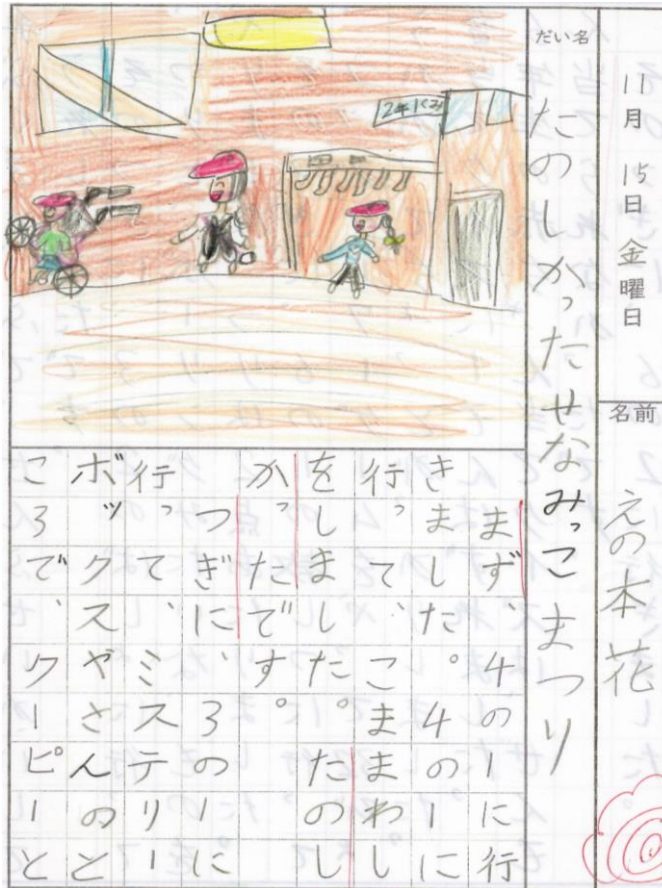 11月 15日 金曜日
名前 えの本花
だい名 たのしかったせなみっこまつり
2年1くみ
まず、4の1に行
きました。4の1に
行って、こままわし
をしました。たのし
かったです。
つぎに、3の1に
行って、ミステリー
ボックスやさんのと
ころで、クーピーと